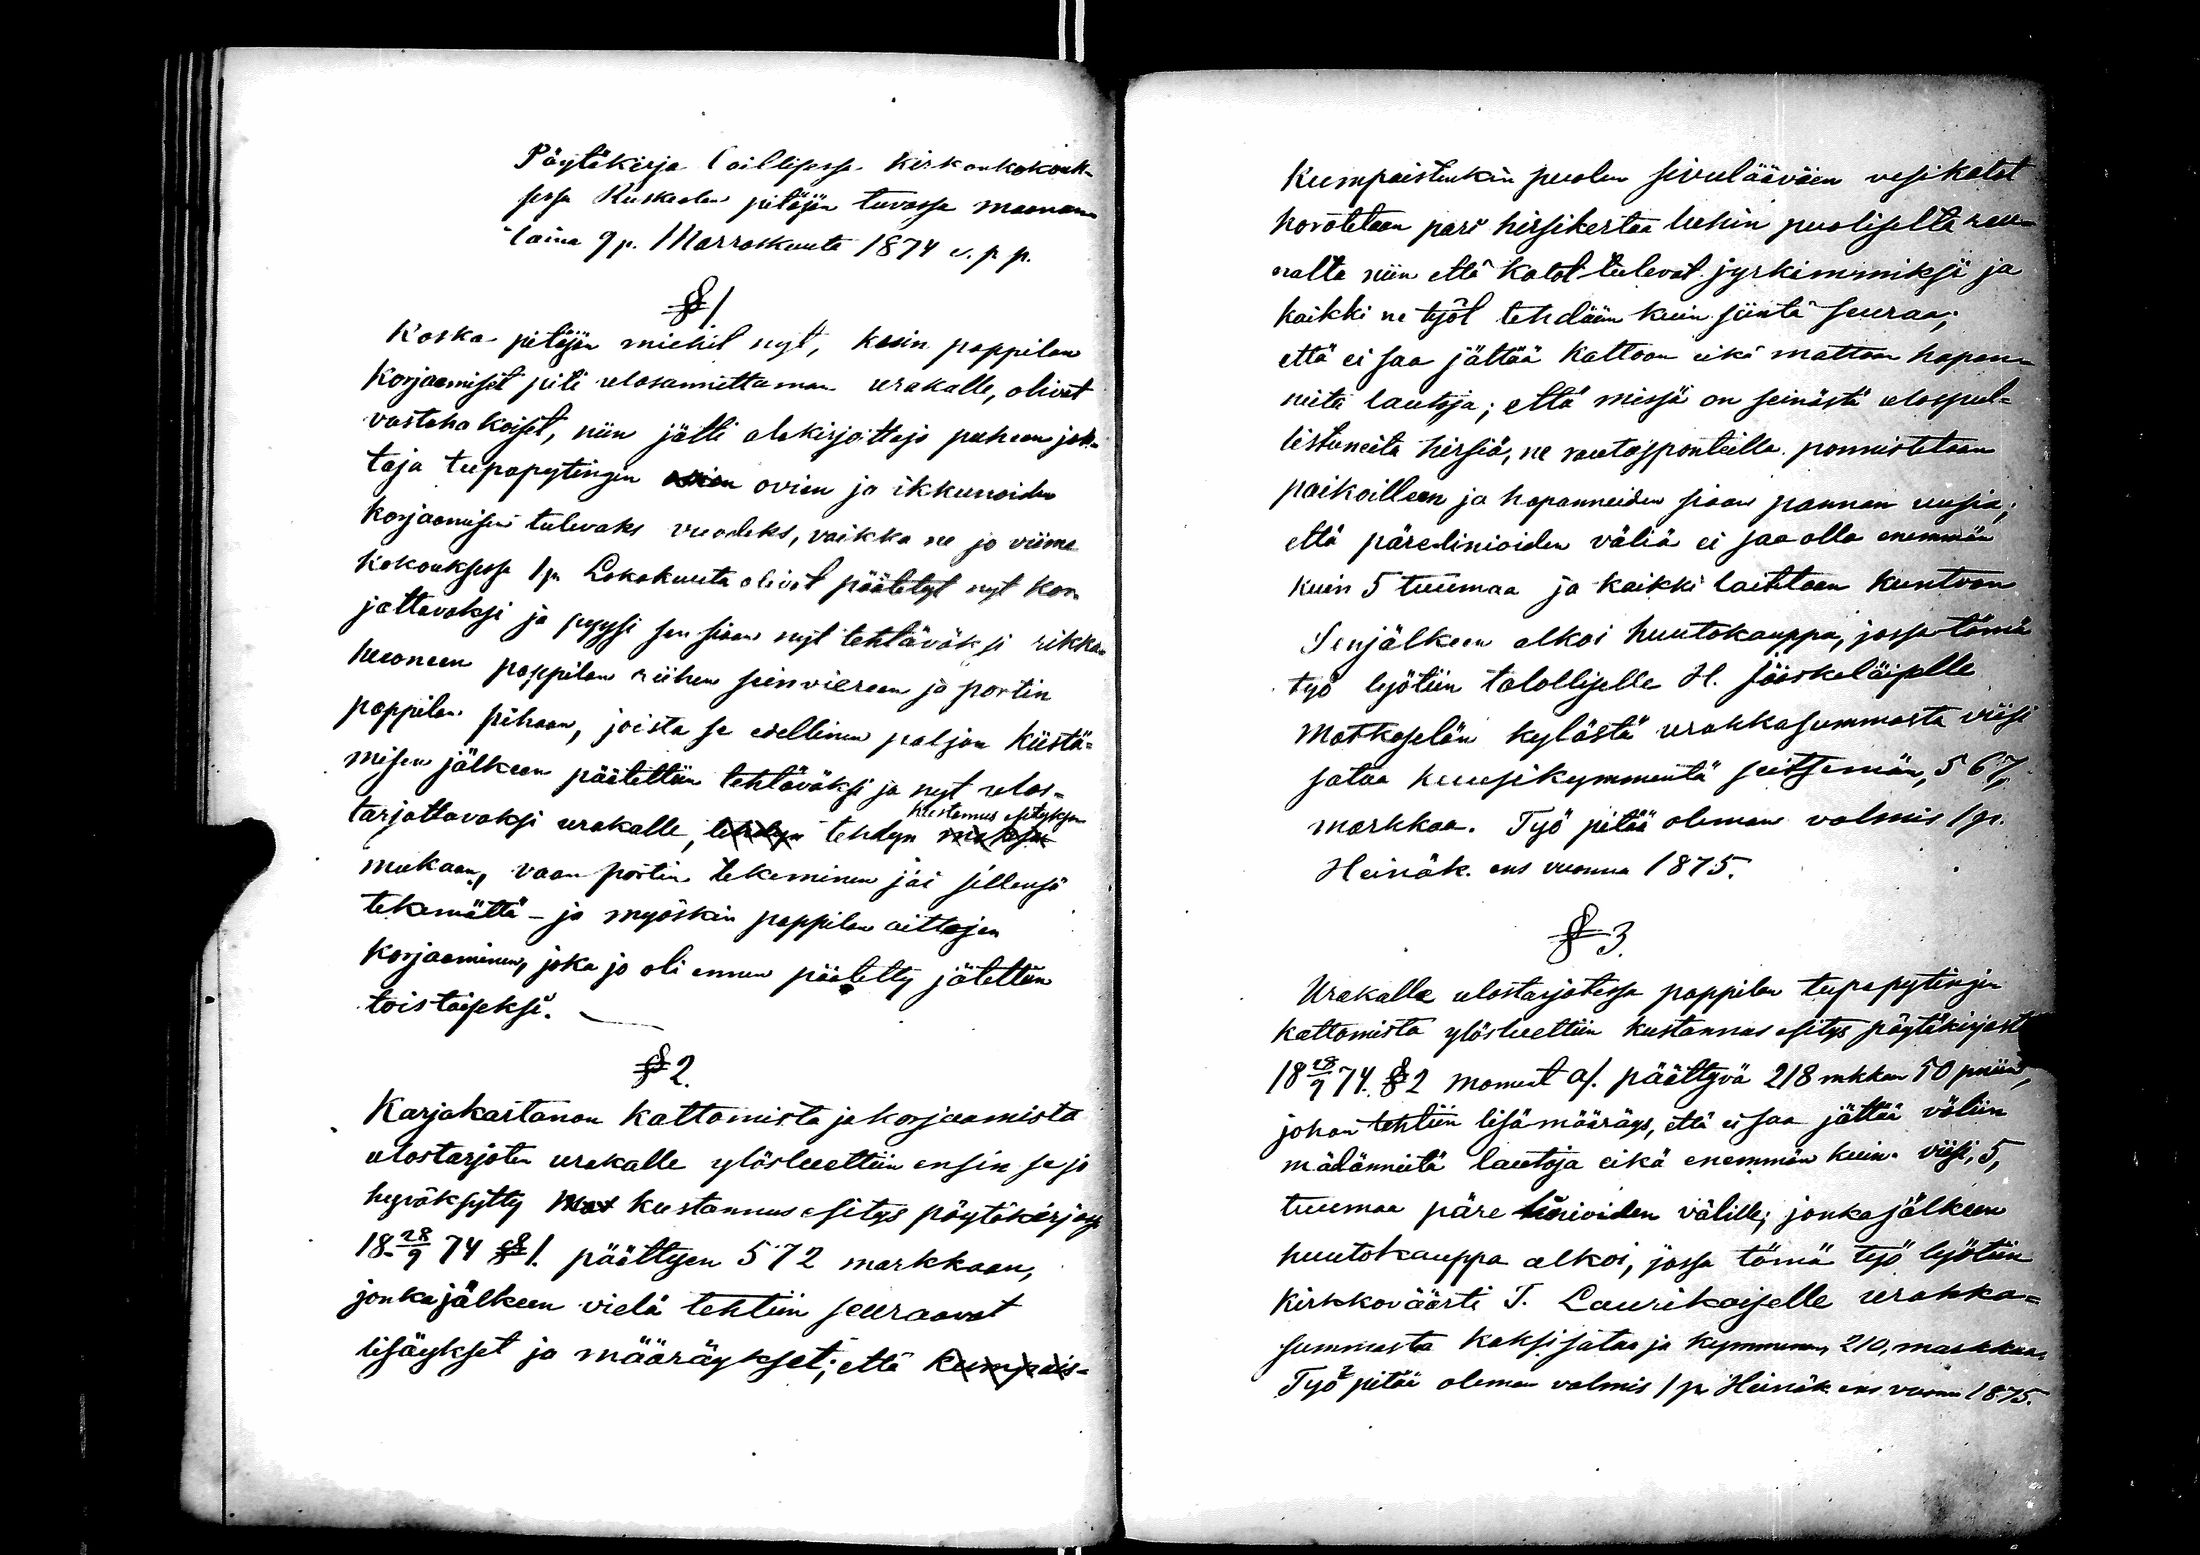 Pöytäkirja laillisessa Kirkonkokouk-
sessa Ruskealan pitäjän tuvassa maanan-
taina 9 p. Marraskuuta 1874 e. p. p.
§ 1.
Koska pitäjän miehet nyt, kuin pappilan
korjaamiset piti ulosannettaman urakalle, olivat
vastahakoiset, niin jätti alekirjoittaja puheenjoh-
taja tupapytingin ovien ja ikkunoiden
korjaamisen tulevaks vuodeks, vaikka ne jo viime
kokouksessa 1 p. Lokakuuta olivat päätetyt nyt kor-
jattavaksi ja pyysi sen siaan nyt tehtäväksi rikka-
huoneen pappilan riihen seinviereen ja portin
pappilan pihaan, joista se edellinen paljon kiistä-
misen jälkeen päätettiin tehtäväksi ja nyt ulos-
tarjottavaksi urakalle, tehdyn kustannus esityksen
mukaan, vaan portin tekeminen jäi sillensä
tekemättä – ja myöskin pappilan aittojen
korjaaminen, joka jo oli ennen päätetty jätettiin
toistaiseksi.
§ 2.
Karjakartanon kattamista ja korjaamista
ulostarjoten urakalle ylösluettiin ensin se jo
hyväksytty kustannus esitys pöytäkirjassa
18 28/9 74 § 1. päättyen 572 markkaan,
jonka jälkeen vielä tehtiin seuraavat
lisäykset ja määräykset; että kumpais-
Kumpaistenkin puolen sivulääväin vesikatot
korotetaan pari hirsikertaa luhin puoliselta reu-
nalta niin että katot tulevat jyrkimmiksi ja
kaikki ne työt tehdään kuin siintä seuraa;
että ei saa jättää kattoon eikä mattoon hapan-
neita lautoja; että missä on seinästä ulospul-
listuneita hirsiä, ne rautasponteilla ponnistetaan
paikoilleen ja hapanneiden siaan pannan uusia;
että pärelinioiden väliä ei saa olla enemmän
kuin 5 tuumaa ja kaikki laitetaan kuntoon
Senjälkeen alkoi huutokauppa, jossa tämä
työ lyötiin talolliselle H. Jääskeläiselle
Matkaselän kylästä urakkasummasta viisi
sataa kuusikymmentä seitsemän, 567,
markkaa. Työ pitää oleman valmis 1 p.
Heinäk. ens vuonna 1875.
§ 3.
Urakalle ulostarjotessa pappilan tupapytingin
kattamista ylösluettiin kustannus esitys pöytäkirjast
18 28/9 74. § 2 moment a/. päättyvä 218 mkkan 50 pniin,
johon tehtiin lisämääräys, että ei saa jättää väliin
mädänneitä lautoja eikä enemmän kuin viisi, 5,
tuumaa päre linioiden välille; jonka jälkeen
huutokauppa alkoi, jossa tämä työ lyötiin
Kirkkoväärti T. Laurikaiselle urakka-
summasta kaksisataa ja kymmenen, 210, markkaa.
Työ pitää oleman valmis 1 p. Heinäk. ens vuonna 1875.